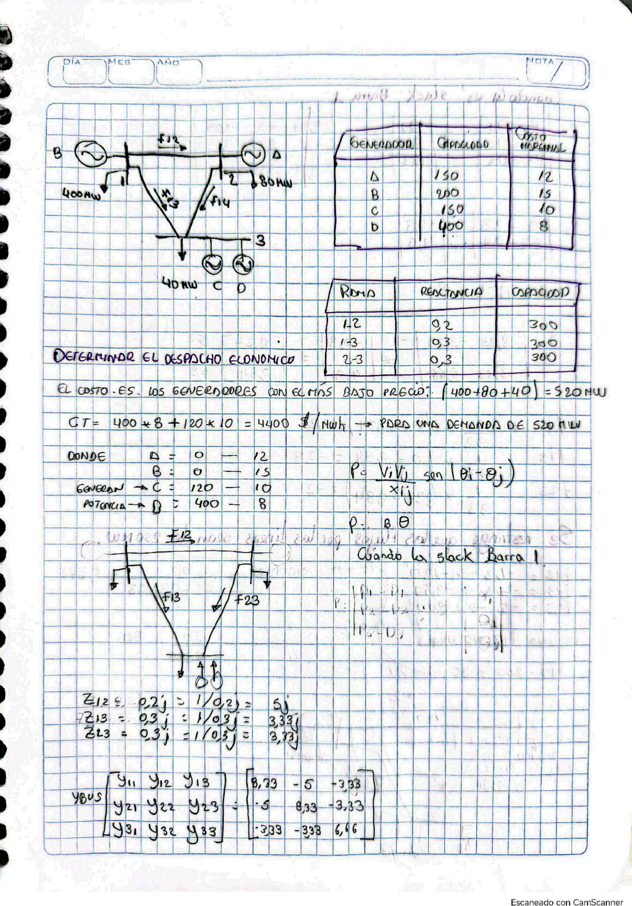 DÍA MES AÑO NOTA
B f12 A
1 2
400MW 80MW
f13 f14
3
40MW C D
GENERADOR CAPACIDAD COSTO MARGINAL
A 150 12
B 200 15
C 150 10
D 400 8
RAMA REACTANCIA CAPACIDAD
1-2 0,2 300
1-3 0,3 300
2-3 0,3 300
DETERMINAR EL DESPACHO ECONOMICO
EL COSTO ES. LOS GENERADORES CON EL MÁS BAJO PRECIO: (400+80+40) = 520 MW
CT = 400 * 8 + 120 * 10 = 4400 $/MWh → PARA UNA DEMANDA DE 520 MW
DONDE A = 0 — 12
B = 0 — 15
GENERAN → C = 120 — 10
POTENCIA → D = 400 — 8
P = ViVj/xij sen (θi - θj)
P = B θ
Cuándo la slack Barra 1.
f12
f13 f23
Z12 = 0,2j = 1/0,2j = 5j
Z13 = 0,3j = 1/0,3j = 3,33j
Z23 = 0,3j = 1/0,3j = 3,33j
YBUS [y11 y12 y13] = [8,33 -5 -3,33]
[y21 y22 y23] [-5 8,33 -3,33]
[y31 y32 y33] [-3,33 -333 6,66]
Escaneado con CamScanner